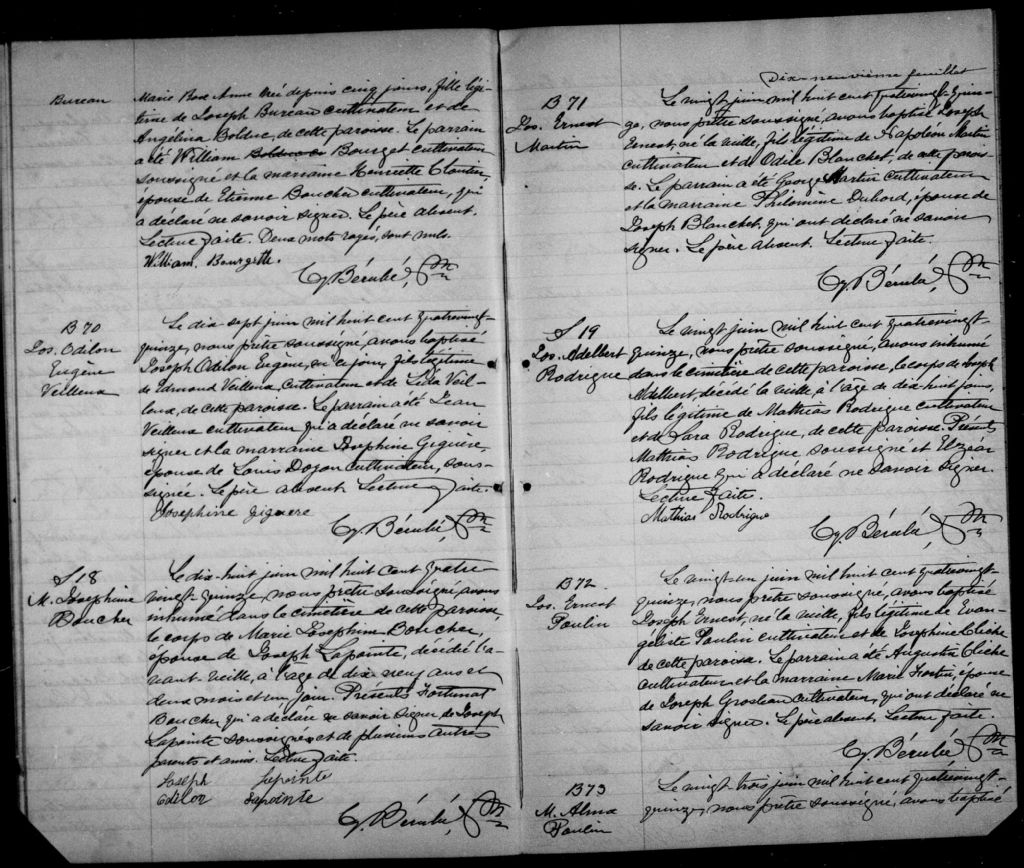 Bureau
Marie Rose Anna née depuis cinq jours, fille légi-
time de Joseph Bureau cultivateur et de
Angélina Bolduc, de cette paroisse. Le parrain
a été William Bolduc Bourget cultivateur
soussigné et la marraine Henriette Cloutier,
épouse de Etienne Boucher cultivateur, qui
a déclaré ne savoir signer. Le père absent.
Lecture faite. Deux mots rayés, sont nuls.
William. Bourgette.
Cy. Bérubé, Ptre
B 70
Jos. Odilon
Eugène
Veilleux
Le dix sept juin mil huit cent quatrevingt-
quinze, nous prêtre soussigné, avons baptisé
Joseph Odilon Eugène, né ce jour, fils légitime
de Edmond Veilleux cultivateur et de Lida Veil-
leux, de cette paroisse. Le parrain a été Jean
Veilleux cultivateur qui a déclaré ne savoir
signer et la marraine Joséphine Giguère,
épouse de Louis Doyon cultivateur, sous-
signée. Le père absent. Lecture faite.
Josephine Giguere
Cy. Bérubé, Ptre
S 18
M. Josephine
Boucher
Le dix-huit juin mil huit cent quatre-
vingt-quinze, nous prêtre soussigné, avons
inhumé dans le cimetière de cette paroisse
le corps de Marie Josephine Boucher,
épouse de Joseph Lapointe, décédée l'a-
vant-veille, à l'age de dix neuf ans et
deux mois et un jour. Présents Fortunat
Boucher qui a déclaré ne savoir signer, de Joseph
Lapointe soussignés et de plusieurs autres
parents et amis. Lecture faite.
Joseph Lapointe
Odilor Lapointe
Cy. Bérubé, Ptre
Dix-neuvième feuillet
B 71
Jos. Ernest
Martin
Le vingt juin mil huit cent quatrevingt-quin-
ze, nous prêtre soussigné, avons baptisé Joseph
Ernest, né la veille, fils légitime de Napoléon Martin
cultivateur et de Odile Blanchet, de cette parois-
se. Le parrain a été George Martin cultivateur
et la marraine Philomène Dubord, épouse de
Joseph Blanchet, qui ont déclaré ne savoir
signer. Le père absent. Lecture faite.
Cy. Bérubé, Ptre
S 19
Jos. Adelbert
Rodrigue
Le vingt juin mil huit cent quatrevingt-
quinze, nous prêtre soussigné, avons inhumé
dans le cimetière de cette paroisse, le corps de Joseph
Adelbert, décédé la veille à l'âge de dix huit jours,
fils légitime de Mathias Rodrigue cultivateur
et de Sara Rodrigue, de cette paroisse. Présents
Mathias Rodrigue soussigné et Elzéar
Rodrigue qui a déclaré ne savoir signer.
Lecture faite.
Mathias Rodrigue
Cy. Bérubé, Ptre
B 72
Jos. Ernest
Poulin
Le vingt un juin mil huit cent quatrevingt-
quinze, nous prêtre soussigné, avons baptisé
Joseph Ernest, né la veille, fils légitime de Evan-
géliste Poulin cultivateur et de Josephine Cliche
de cette paroisse. Le parrain a été Augustin Cliche
cultivateur et la marraine Marie Fortin, épouse
de Joseph Grosleau cultivateur, qui ont déclaré ne
savoir signer. Le père absent. Lecture faite.
Cy. Bérubé Ptre
B 73
M. Alma
Poulin
Le vingt trois juin mil huit cent quatrevingt-
quinze, nous prêtre soussigné, avons baptisé